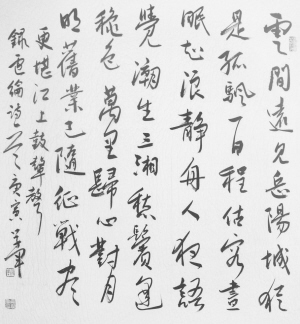 雲開遠見岳陽城猶
是孤帆一日程估客晝
眠知浪靜舟人夜語
覺潮生三湘愁鬢逢
秋色萬里歸心對月
明舊業已隨征戰盡
更堪江上鼓鼙聲
錄盧綸詩 庚寅